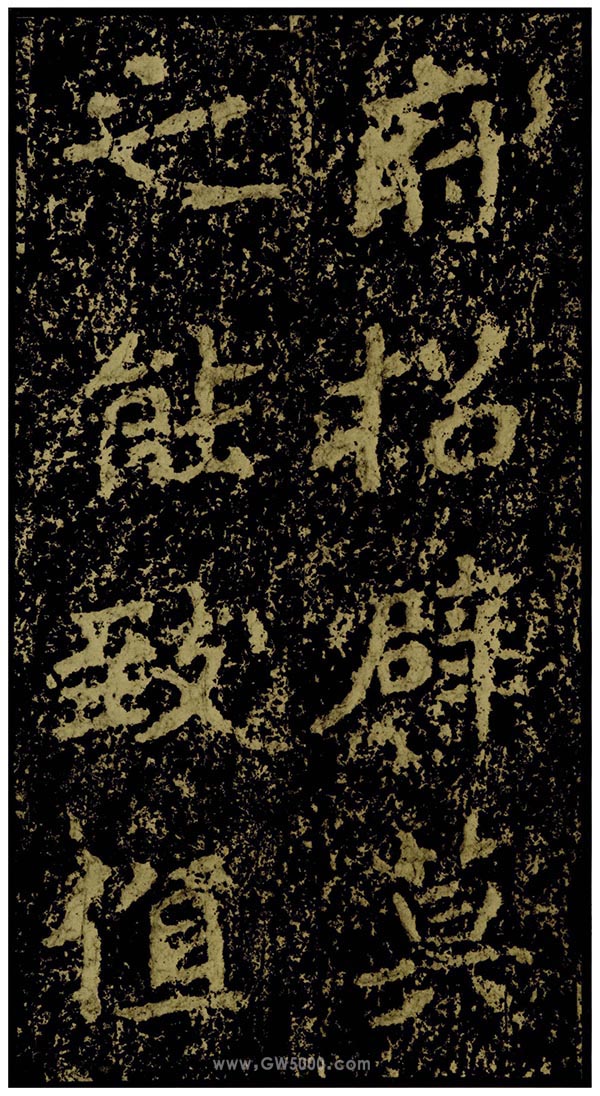 府招辟莫
之能致值
www.GW5000.com